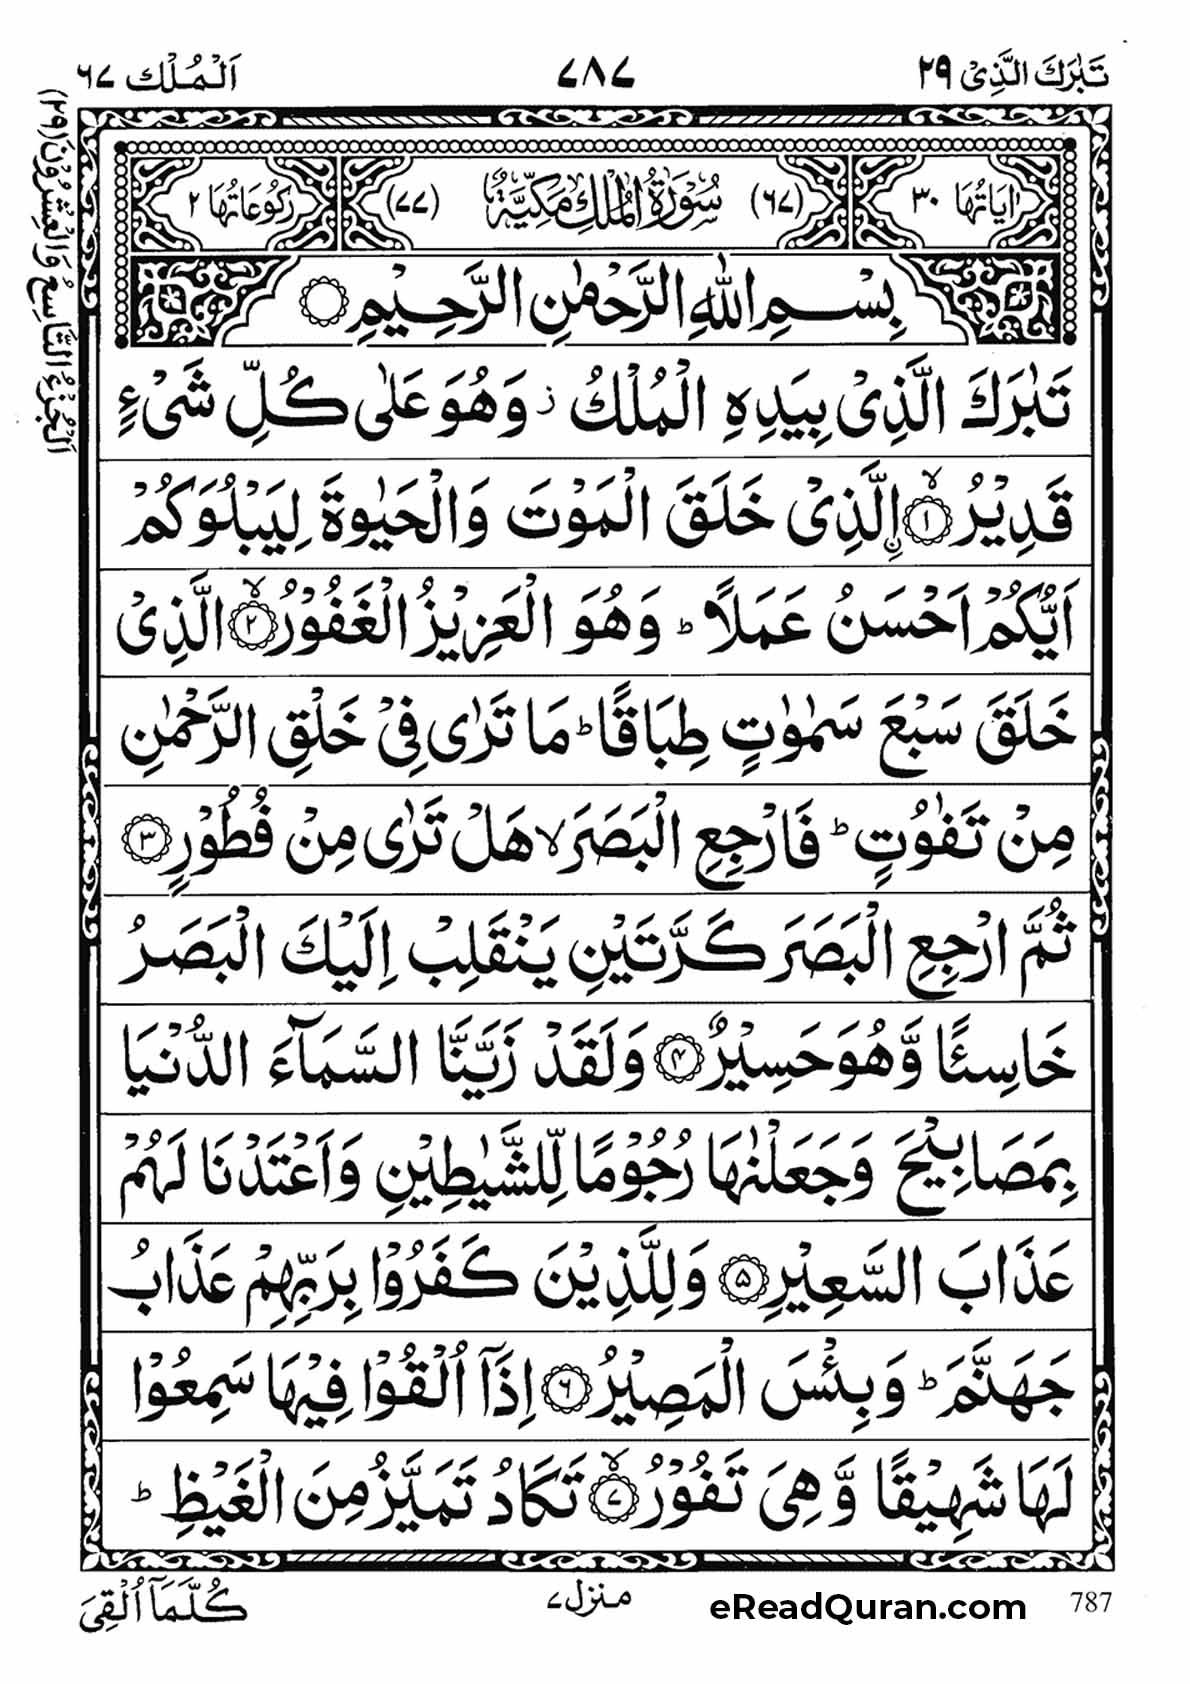 تَبٰرَكَ الَّذِیْ ٢٩
٧٨٧
اَلْمُلْك ٦٧
اَلْجُزْءُ التَّاسِعُ وَالْعِشْرُوْنَ (٢٩)
اٰيَاتُهَا ٣٠
(٦٧) سُوْرَةُ الْمُلْكِ مَكِّيَّةٌ (٧٧)
رُكُوْعَاتُهَا ٢
بِسْمِ اللّٰهِ الرَّحْمٰنِ الرَّحِيْمِ
تَبٰرَكَ الَّذِیْ بِيَدِهِ الْمُلْكُ ز وَهُوَ عَلٰى كُلِّ شَیْءٍ
قَدِيْرُ ۙ﴿١﴾ اِۨلَّذِیْ خَلَقَ الْمَوْتَ وَالْحَيٰوةَ لِيَبْلُوَكُمْ
اَيُّكُمْ اَحْسَنُ عَمَلًا ؕ وَهُوَ الْعَزِيْزُ الْغَفُوْرُ ۙ﴿٢﴾ الَّذِیْ
خَلَقَ سَبْعَ سَمٰوٰتٍ طِبَاقًا ؕ مَا تَرٰى فِیْ خَلْقِ الرَّحْمٰنِ
مِنْ تَفٰوُتٍ ؕ فَارْجِعِ الْبَصَرَ ۙ هَلْ تَرٰى مِنْ فُطُوْرٍ ﴿٣﴾
ثُمَّ ارْجِعِ الْبَصَرَ كَرَّتَيْنِ يَنْقَلِبْ اِلَيْكَ الْبَصَرُ
خَاسِئًا وَّهُوَ حَسِيْرٌ ﴿۴﴾ وَلَقَدْ زَيَّنَّا السَّمَآءَ الدُّنْيَا
بِمَصَابِيْحَ وَجَعَلْنٰهَا رُجُوْمًا لِّلشَّيٰطِيْنِ وَاَعْتَدْنَا لَهُمْ
عَذَابَ السَّعِيْرِ ﴿۵﴾ وَلِلَّذِيْنَ كَفَرُوْا بِرَبِّهِمْ عَذَابُ
جَهَنَّمَ ؕ وَبِئْسَ الْمَصِيْرُ ﴿۶﴾ اِذَآ اُلْقُوْا فِيْهَا سَمِعُوْا
لَهَا شَهِيْقًا وَّهِیَ تَفُوْرُ ۙ﴿٧﴾ تَكَادُ تَمَيَّزُ مِنَ الْغَيْظِ ؕ
كُلَّمَآ اُلْقِیَ
منزل ٧
eReadQuran.com
787